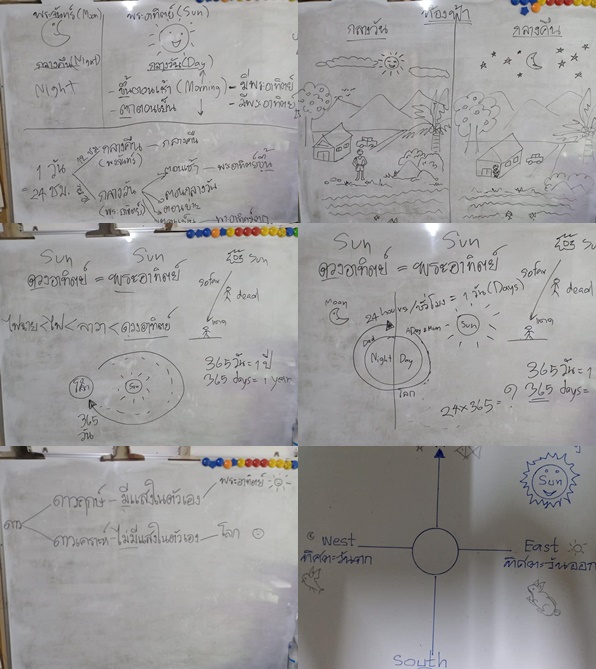 พระจันทร์ (Moon)
พระอาทิตย์ (Sun)
กลางคืน (Night)
Night
กลางวัน (Day)
- ขึ้นตอนเช้า (Morning) - มีพระอาทิตย์
- ตกตอนเย็น
1 วัน
24 ชม.
กลางคืน
(พระจันทร์)
- กลางคืน
กลางวัน
ตอนเช้า - พระอาทิตย์ขึ้น
ตอนกลางวัน
ท้องฟ้า
กลางวัน
กลางคืน
Sun Sun
ดวงอาทิตย์ = พระอาทิตย์
Sun
dead
< ไฟ < ลาวา < ดวงอาทิตย์
โลก
Sun
365
วัน
365 วัน = 1 ปี
365 days = 1 year
Sun Sun
ดวงอาทิตย์ = พระอาทิตย์
Sun
dead
Moon
24 hours/ชั่วโมง = 1 วัน (Days)
Sun
Night Day
โลก
365 วัน = 1
365 days =
24×365 =
ดาว
ดาวฤกษ์ - มีแสงในตัวเอง
พระอาทิตย์
ดาวเคราะห์ - ไม่มีแสงในตัวเอง - โลก
Sun
West
ทิศตะวันตก
East
ทิศตะวันออก
South